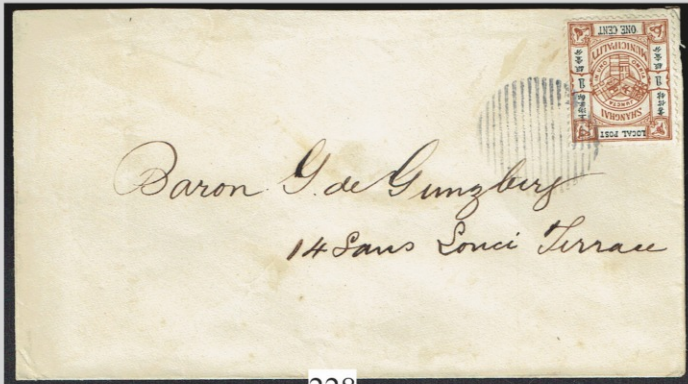 ONE CENT
MUNICIPALITY
SHANGHAI
LOCAL POST
Baron G. de Gunzberg
14 Sans Souci Terrace
228